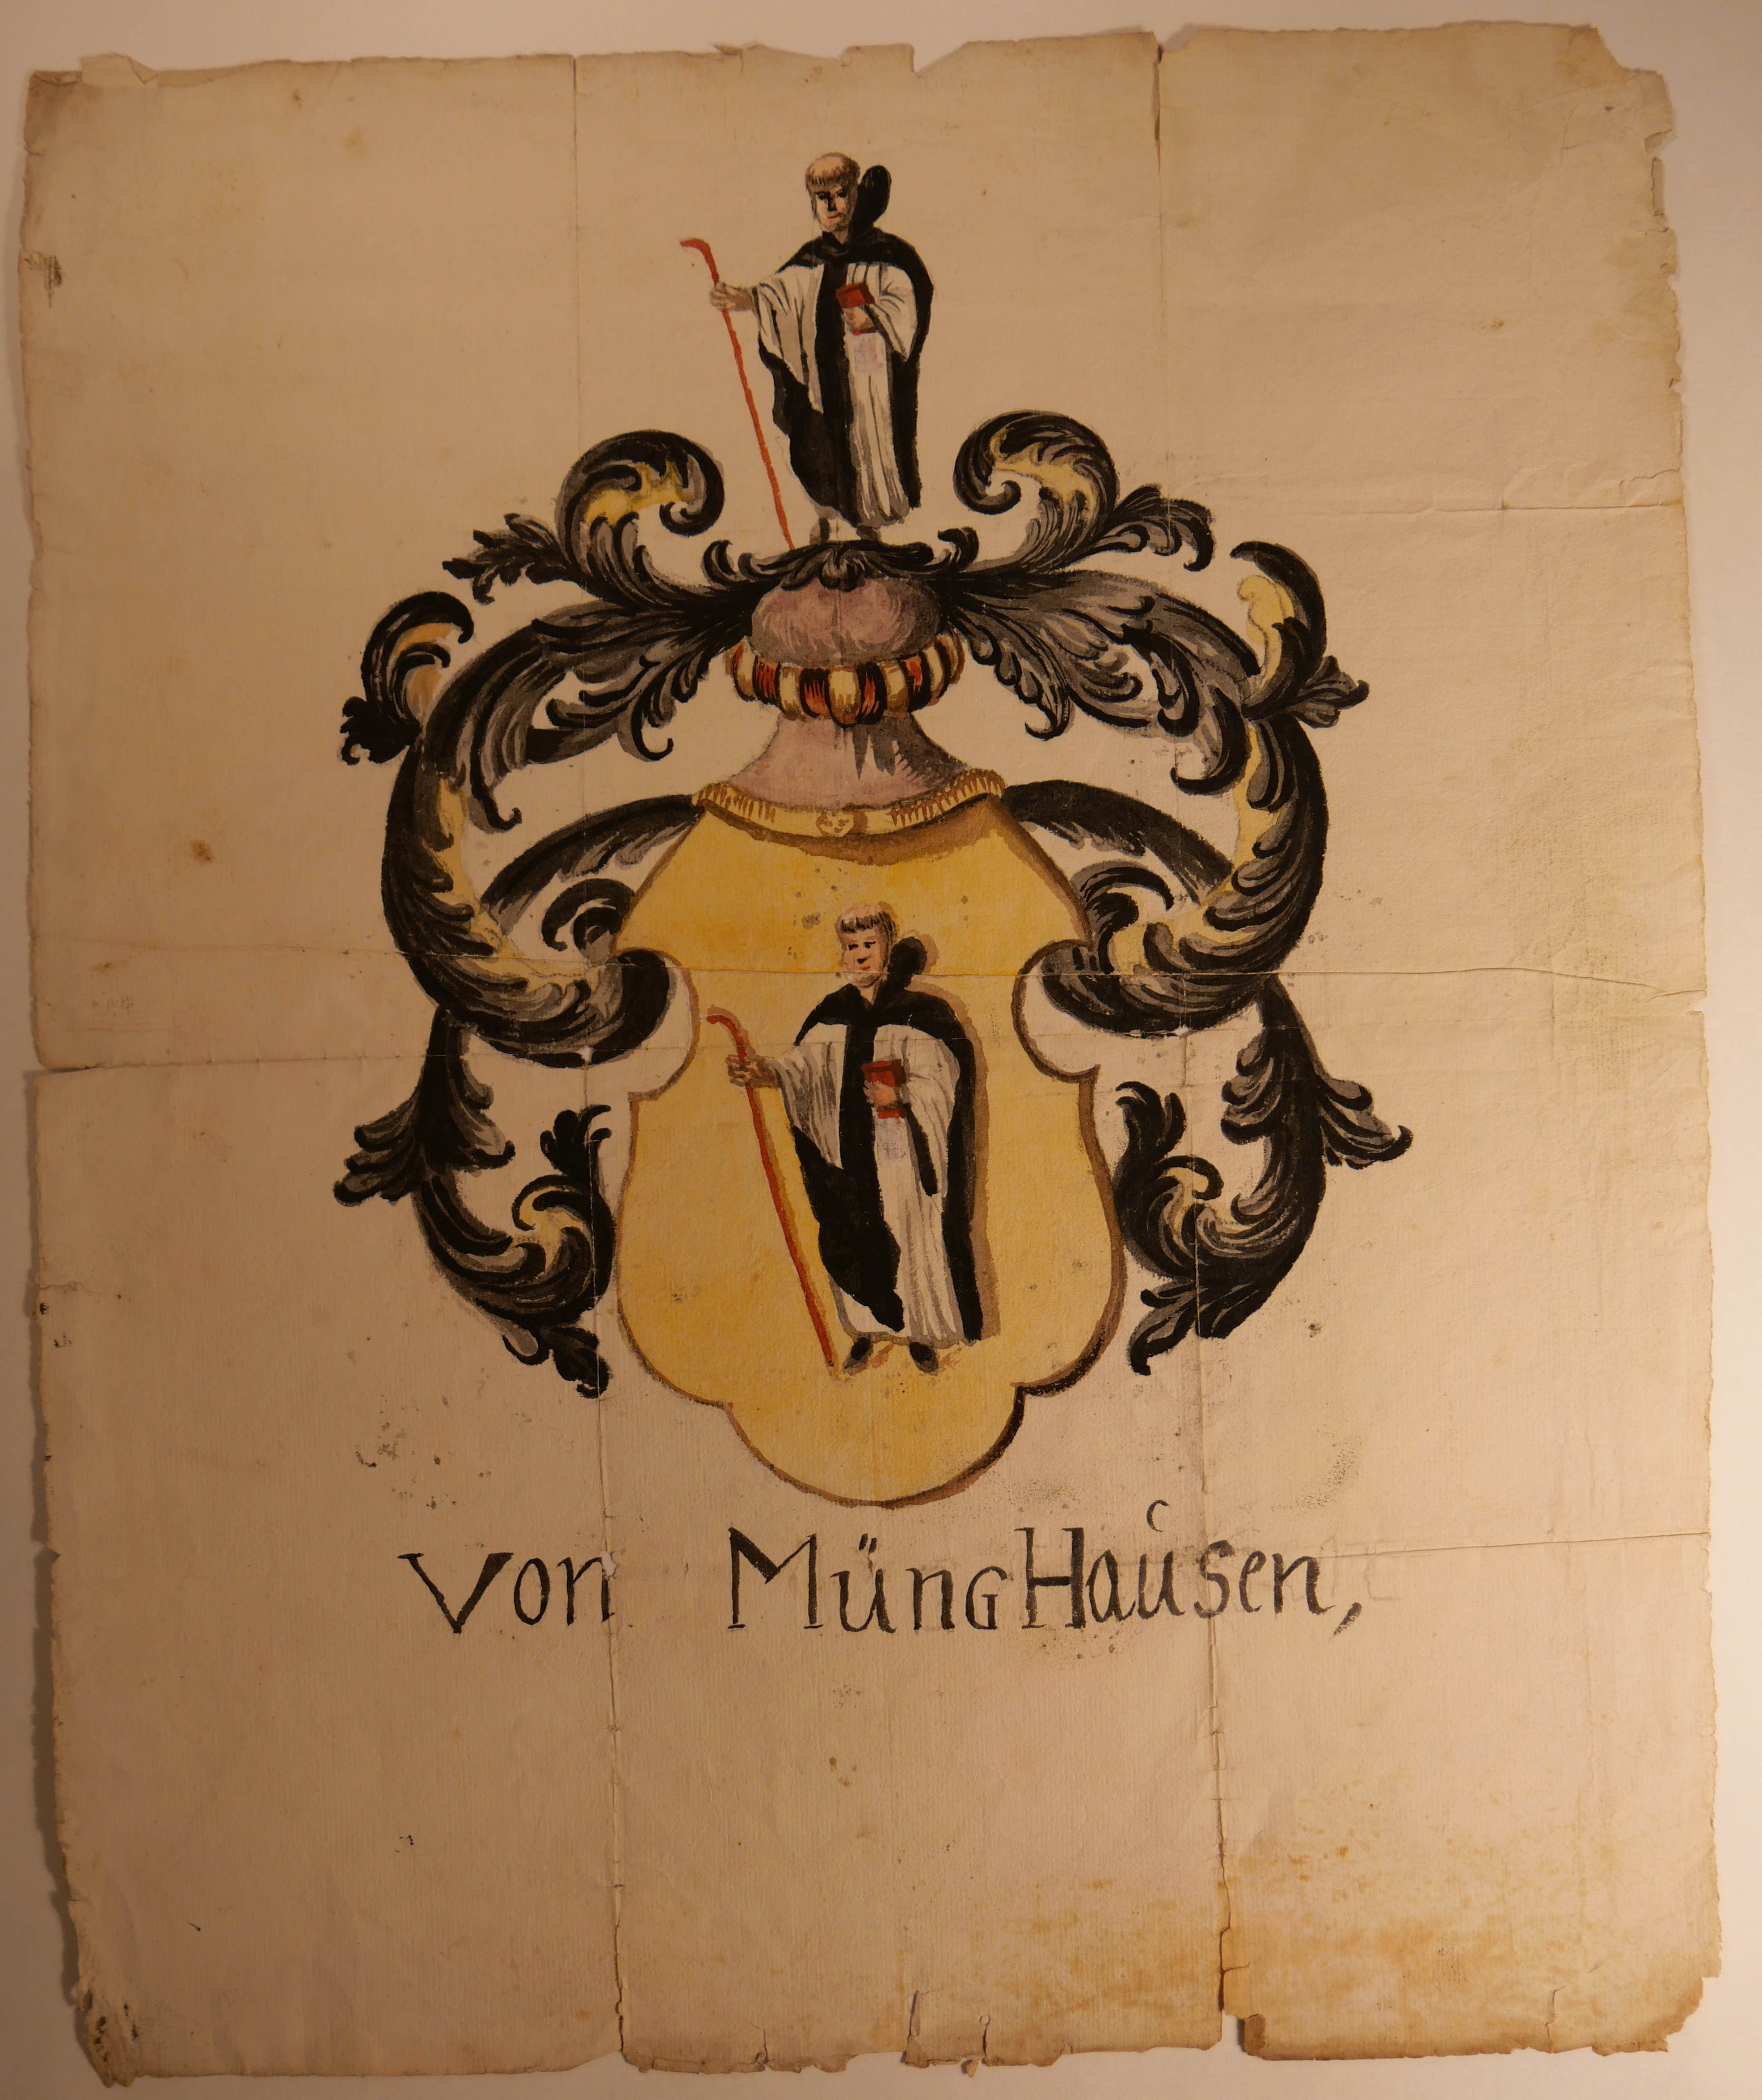 von MüngHausen,